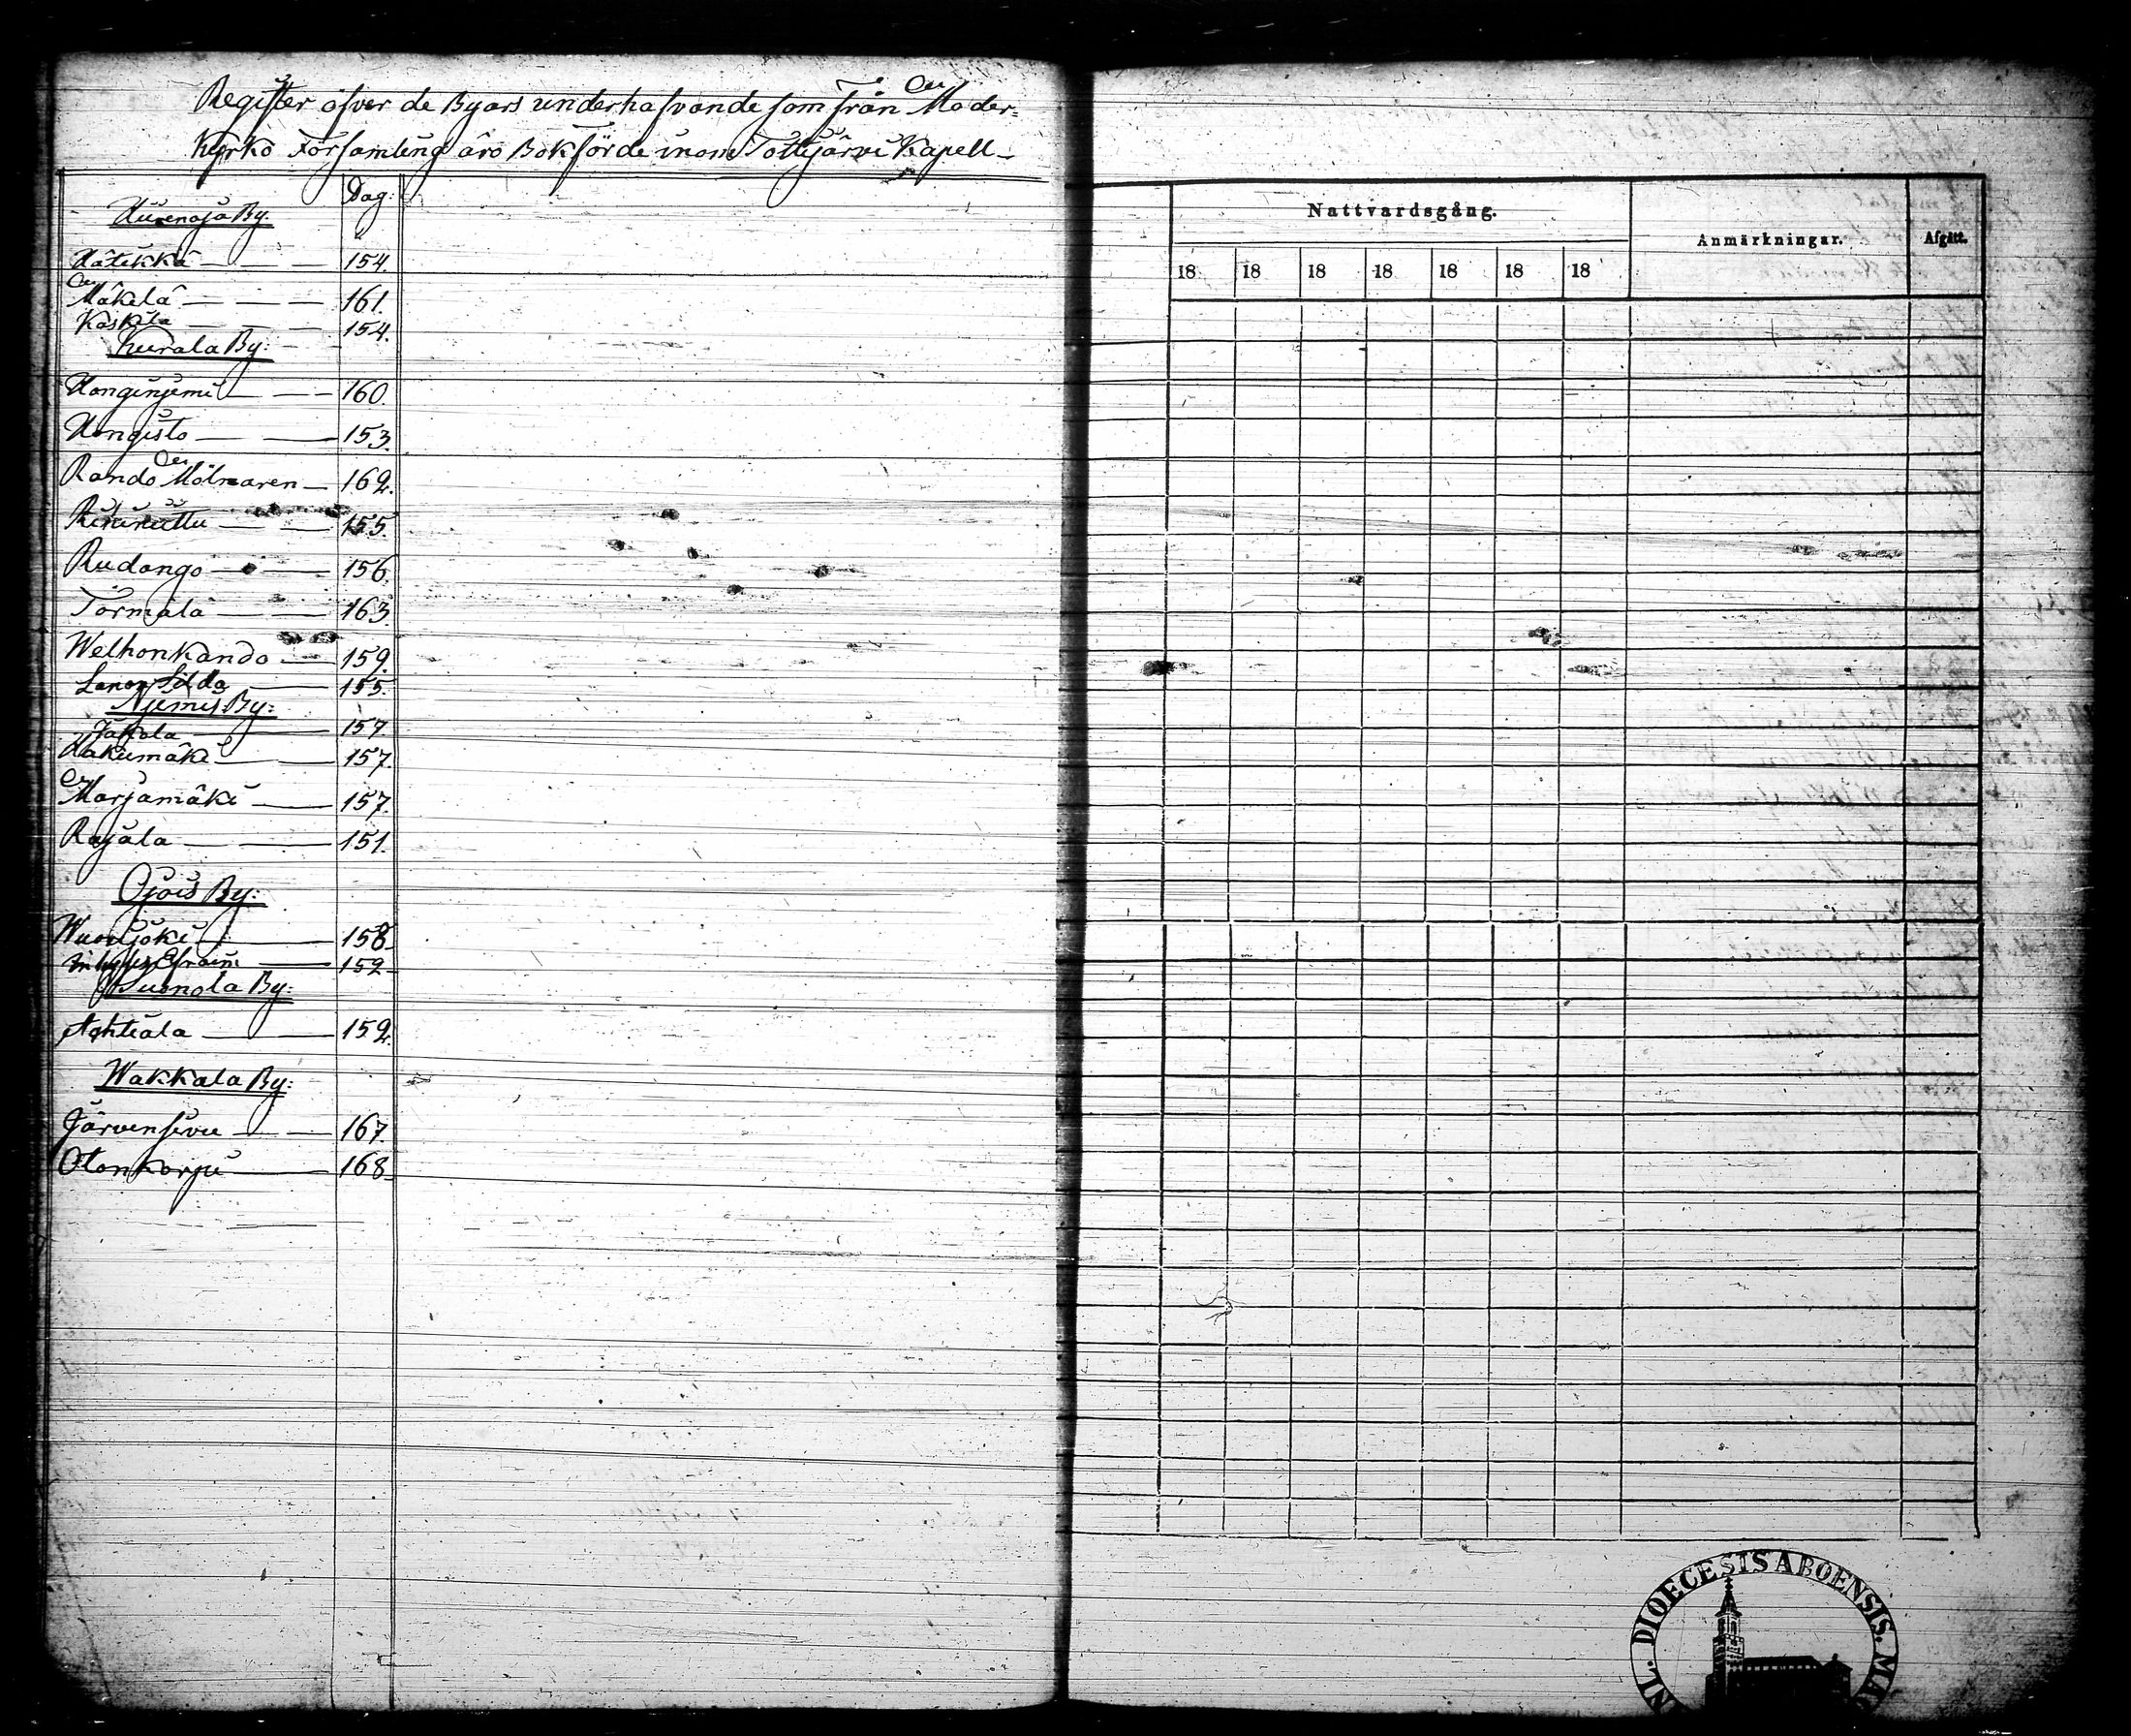 Register öfver de Byars underhafvande som från Moder-
Kyrko Församling äro Bokförde inom Tottijärvi Kapell
Pag:
Hurenoja By:
Hätikkä 154.
Mäkelä 161.
Koskela 154.
Kurala By:
Honginjemi 160
Hongisto 153.
Rando Mölnaren 162.
155.
Rudango 156.
Törmälä 163
Welhonkando 159.
155.
Njemis By:
Jakola 157
Hakumäki 157.
Marjamäki 157.
Rajala 151.
Ojois By:
Wuorijoki 158.
Efraim 152
Suonola By:
Ahtiala 152.
Wakkala By:
Järvensivu 167.
Otonkorpi 168
Nattvardsgång.
Anmärkningar.
Afgått.
18 18 18 18 18 18 18
DIOECESIS ABOENSIS.